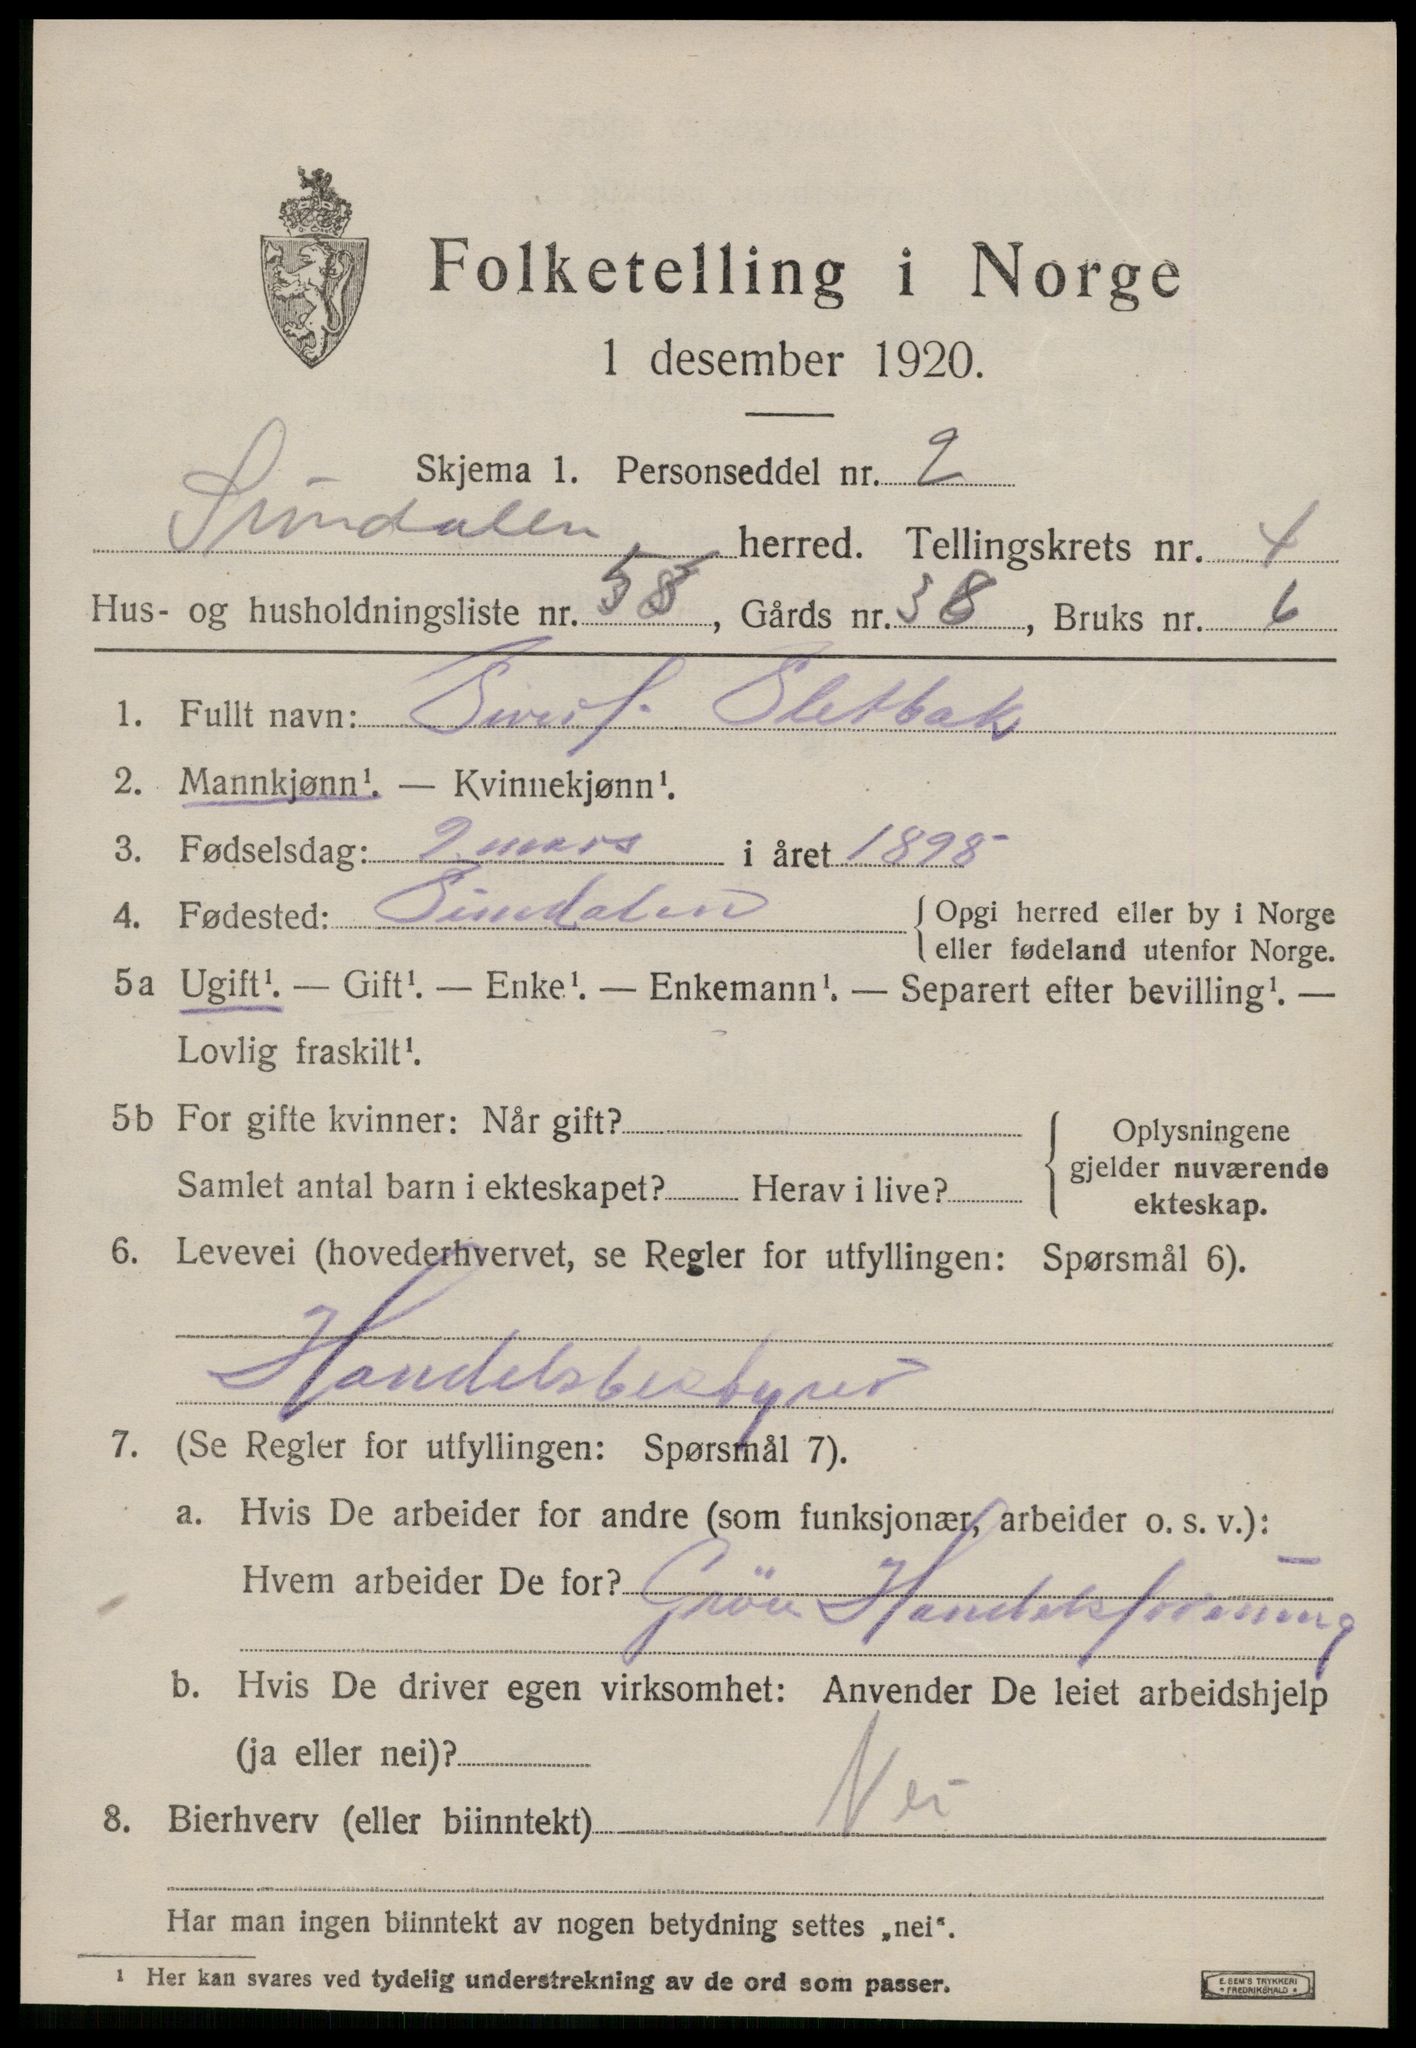 Folketelling i Norge
1 desember 1920.
Skjema 1. Personseddel nr. 2
Sundalen herred. Tellingskrets nr. 4
Hus- og husholdningsliste nr. 58, Gårds nr. 38, Bruks nr. 6
1. Fullt navn: Sletbak
2. Mannkjønn¹. — Kvinnekjønn¹.
3. Fødselsdag: 2 mars i året 1898
4. Fødested: Sundalen
{ Opgi herred eller by i Norge
eller fødeland utenfor Norge.
5a Ugift¹. — Gift¹. — Enke¹. — Enkemann¹. — Separert efter bevilling¹. —
Lovlig fraskilt¹.
5b For gifte kvinner: Når gift?
Samlet antal barn i ekteskapet? Herav i live?
{ Oplysningene
gjelder nuværende
ekteskap.
6. Levevei (hovederhvervet, se Regler for utfyllingen: Spørsmål 6).
Handelsbestyrer
7. (Se Regler for utfyllingen: Spørsmål 7).
a. Hvis De arbeider for andre (som funksjonær, arbeider o. s. v.):
Hvem arbeider De for? Gröu Handelsforening
b. Hvis De driver egen virksomhet: Anvender De leiet arbeidshjelp
(ja eller nei)?
8. Bierhverv (eller biinntekt) Nei
Har man ingen biinntekt av nogen betydning settes „nei“.
¹ Her kan svares ved tydelig understrekning av de ord som passer.
E. SEM'S TRYKKERI
* FREDRIKSHALD *